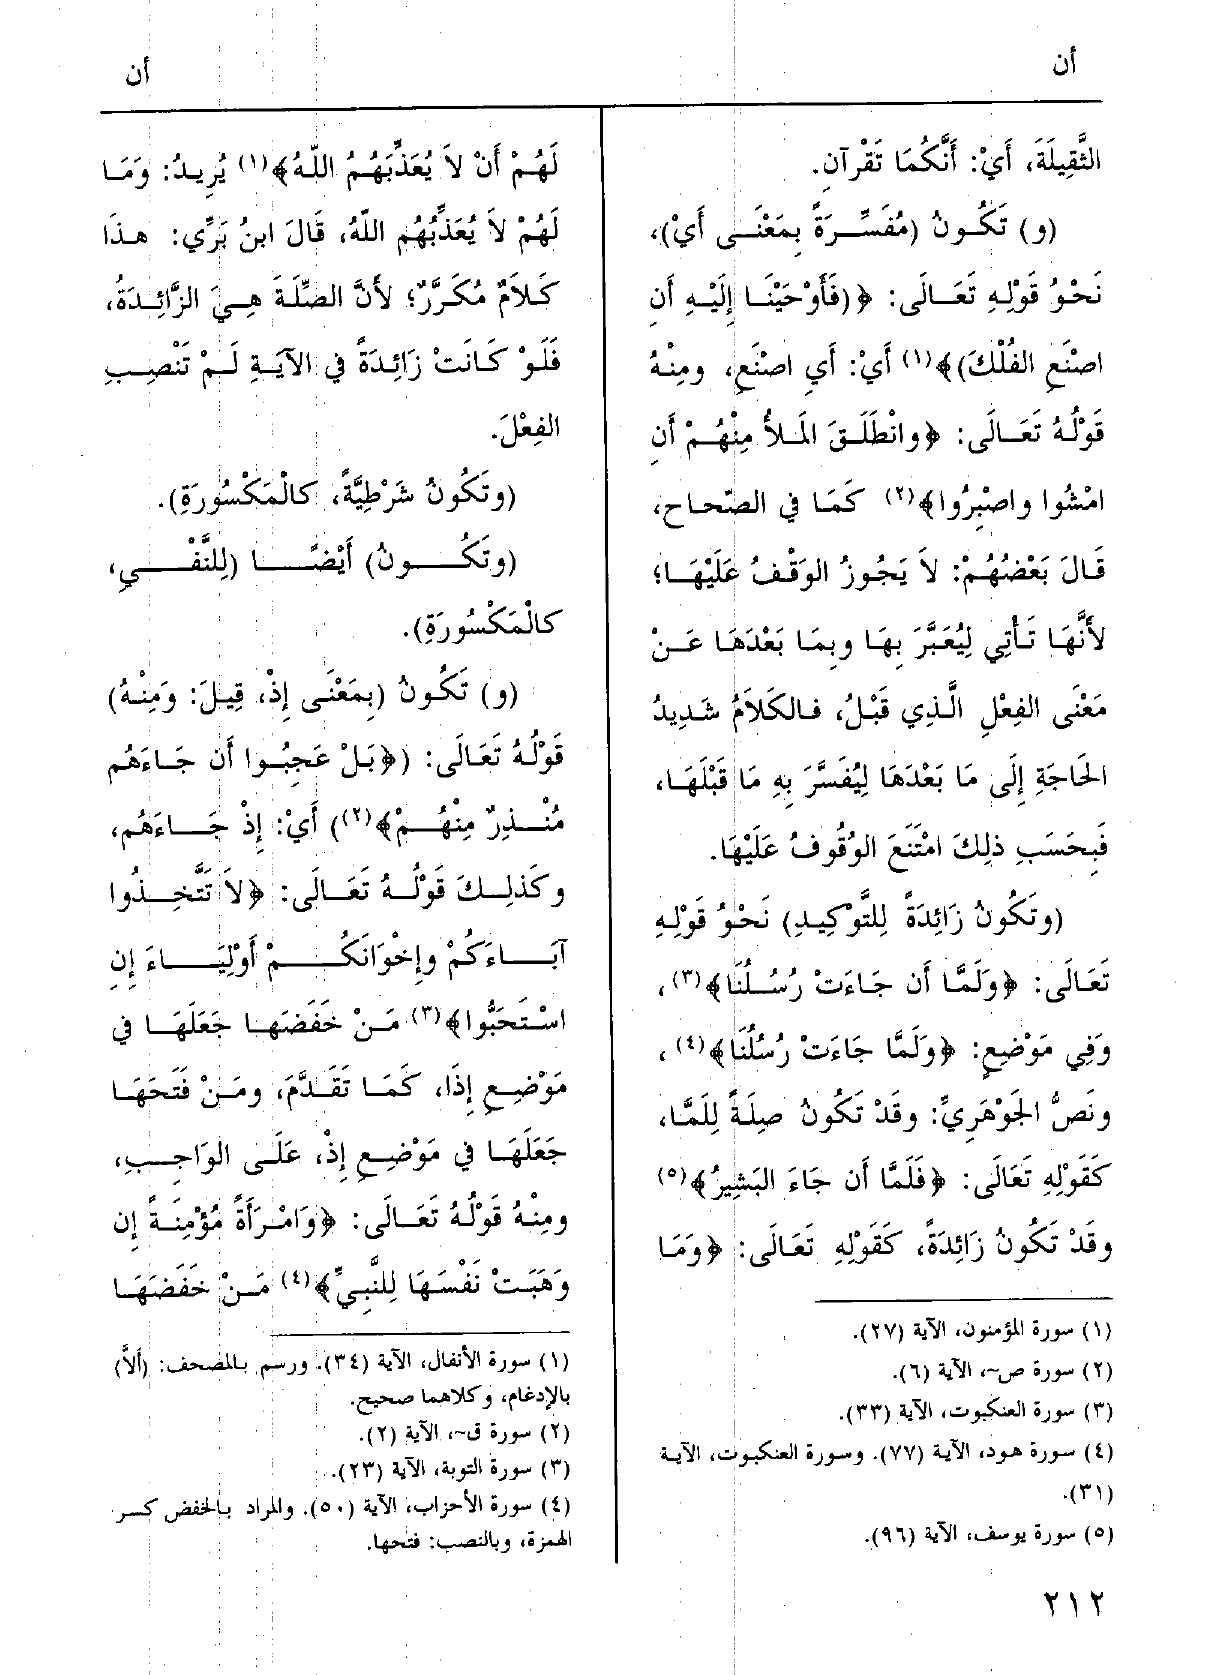 أن
أن
الثَّقِيلَةَ، أَيْ: أَنَّكُمَا تَقْرآنِ.
(و) تَكُونُ (مُفَسِّرَةً بِمَعْنَى أَيْ)،
نَحْوُ قَوْلِهِ تَعَالَى: ﴿(فَأَوْحَيْنَا إِلَيْهِ أَنِ
اصْنَعِ الفُلْكَ)﴾(١) أَيْ: أَيِ اصْنَعِ، ومِنْهُ
قَوْلُهُ تَعَالَى: ﴿وانْطَلَقَ المَلأُ مِنْهُمْ أَنِ
امْشُوا واصْبِرُوا﴾(٢) كَمَا فِي الصّحاحِ،
قَالَ بَعْضُهُمْ: لاَ يَجُوزُ الوَقْفُ عَلَيْهَا؛
لأَنَّهَا تَأْتِي لِيُعَبَّرَ بِهَا وبِمَا بَعْدَهَا عَنْ
مَعْنَى الفِعْلِ الَّذِي قَبْلُ، فَالكَلاَمُ شَدِيدُ
الحَاجَةِ إِلَى مَا بَعْدَهَا لِيُفَسَّرَ بِهِ مَا قَبْلَهَا،
فَبِحَسَبِ ذلِكَ امْتَنَعَ الوُقُوفُ عَلَيْهَا.
(وتَكُونُ زَائِدَةً لِلتَّوْكِيدِ) نَحْوُ قَوْلِهِ
تَعَالَى: ﴿وَلَمَّا أَن جَاءَتْ رُسُلُنَا﴾(٣)،
وَفِي مَوْضِعٍ: ﴿وَلَمَّا جَاءَتْ رُسُلُنَا﴾(٤)،
ونَصُّ الجَوْهَرِيِّ: وقَدْ تَكُونُ صِلَةً لِلَمَّا،
كَقَوْلِهِ تَعَالَى: ﴿فَلَمَّا أَن جَاءَ البَشِيرُ﴾(٥)
وقَدْ تَكُونُ زَائِدَةً، كَقَوْلِهِ تَعَالَى: ﴿وَمَا
(١) سورة المؤمنون، الآية (٢٧).
(٢) سورة ص~، الآية (٦).
(٣) سورة العنكبوت، الآية (٣٣).
(٤) سورة هود، الآية (٧٧). وسورة العنكبوت، الآية
(٣١).
(٥) سورة يوسف، الآية (٩٦).
لَهُمْ أَنْ لاَ يُعَذِّبَهُمُ اللّهُ﴾(١) يُرِيدُ: وَمَا
لَهُمْ لاَ يُعَذِّبُهُم اللّهُ، قَالَ ابنُ بَرِّي: هذَا
كَلاَمٌ مُكَرَّرٌ؛ لأَنَّ الصِّلَةَ هِيَ الزَّائِدَةُ،
فَلَوْ كَانَتْ زَائِدَةً فِي الآيَةِ لَمْ تَنْصِبِ
الفِعْلَ.
(وتَكُونُ شَرْطِيَّةً، كالْمَكْسُورَةِ).
(وتَكُونُ) أَيْضًا (لِلنَّفْيِ،
كالْمَكْسُورَةِ).
(و) تَكُونُ (بِمَعْنَى إِذْ، قِيلَ: وَمِنْهُ)
قَوْلُهُ تَعَالَى: (﴿بَلْ عَجِبُوا أَن جَاءَهُم
مُنْذِرٌ مِنْهُمْ﴾(٢)) أَيْ: إِذْ جَاءَهُم،
وكَذلِكَ قَوْلُهُ تَعَالَى: ﴿لاَ تَتَّخِذُوا
آبَاءَكُمْ وإِخْوَانَكُمْ أَوْلِيَاءَ إِنِ
اسْتَحَبُّوا﴾(٣) مَنْ خَفَضَهَا جَعَلَهَا فِي
مَوْضِعِ إِذَا، كَمَا تَقَدَّمَ، ومَنْ فَتَحَهَا
جَعَلَهَا فِي مَوْضِعِ إِذْ، عَلَى الوَاجِبِ،
ومِنْهُ قَوْلُهُ تَعَالَى: ﴿وَامْرَأَةً مُؤْمِنَةً إِن
وَهَبَتْ نَفْسَهَا لِلنَّبِيِّ﴾(٤) مَنْ خَفَضَهَا
(١) سورة الأنفال، الآية (٣٤). ورسم بالمصحف: (أَلاَّ)
بالإدغام، وكلاهما صحيح.
(٢) سورة ق~، الآية (٢).
(٣) سورة التوبة، الآية (٢٣).
(٤) سورة الأحزاب، الآية (٥٠). والمراد بالخفض كسر
الهمزة، وبالنصب: فتحها.
٢١٢